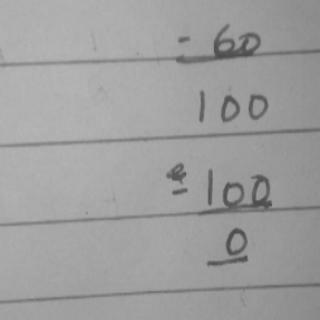 - 60
100
- 100
0